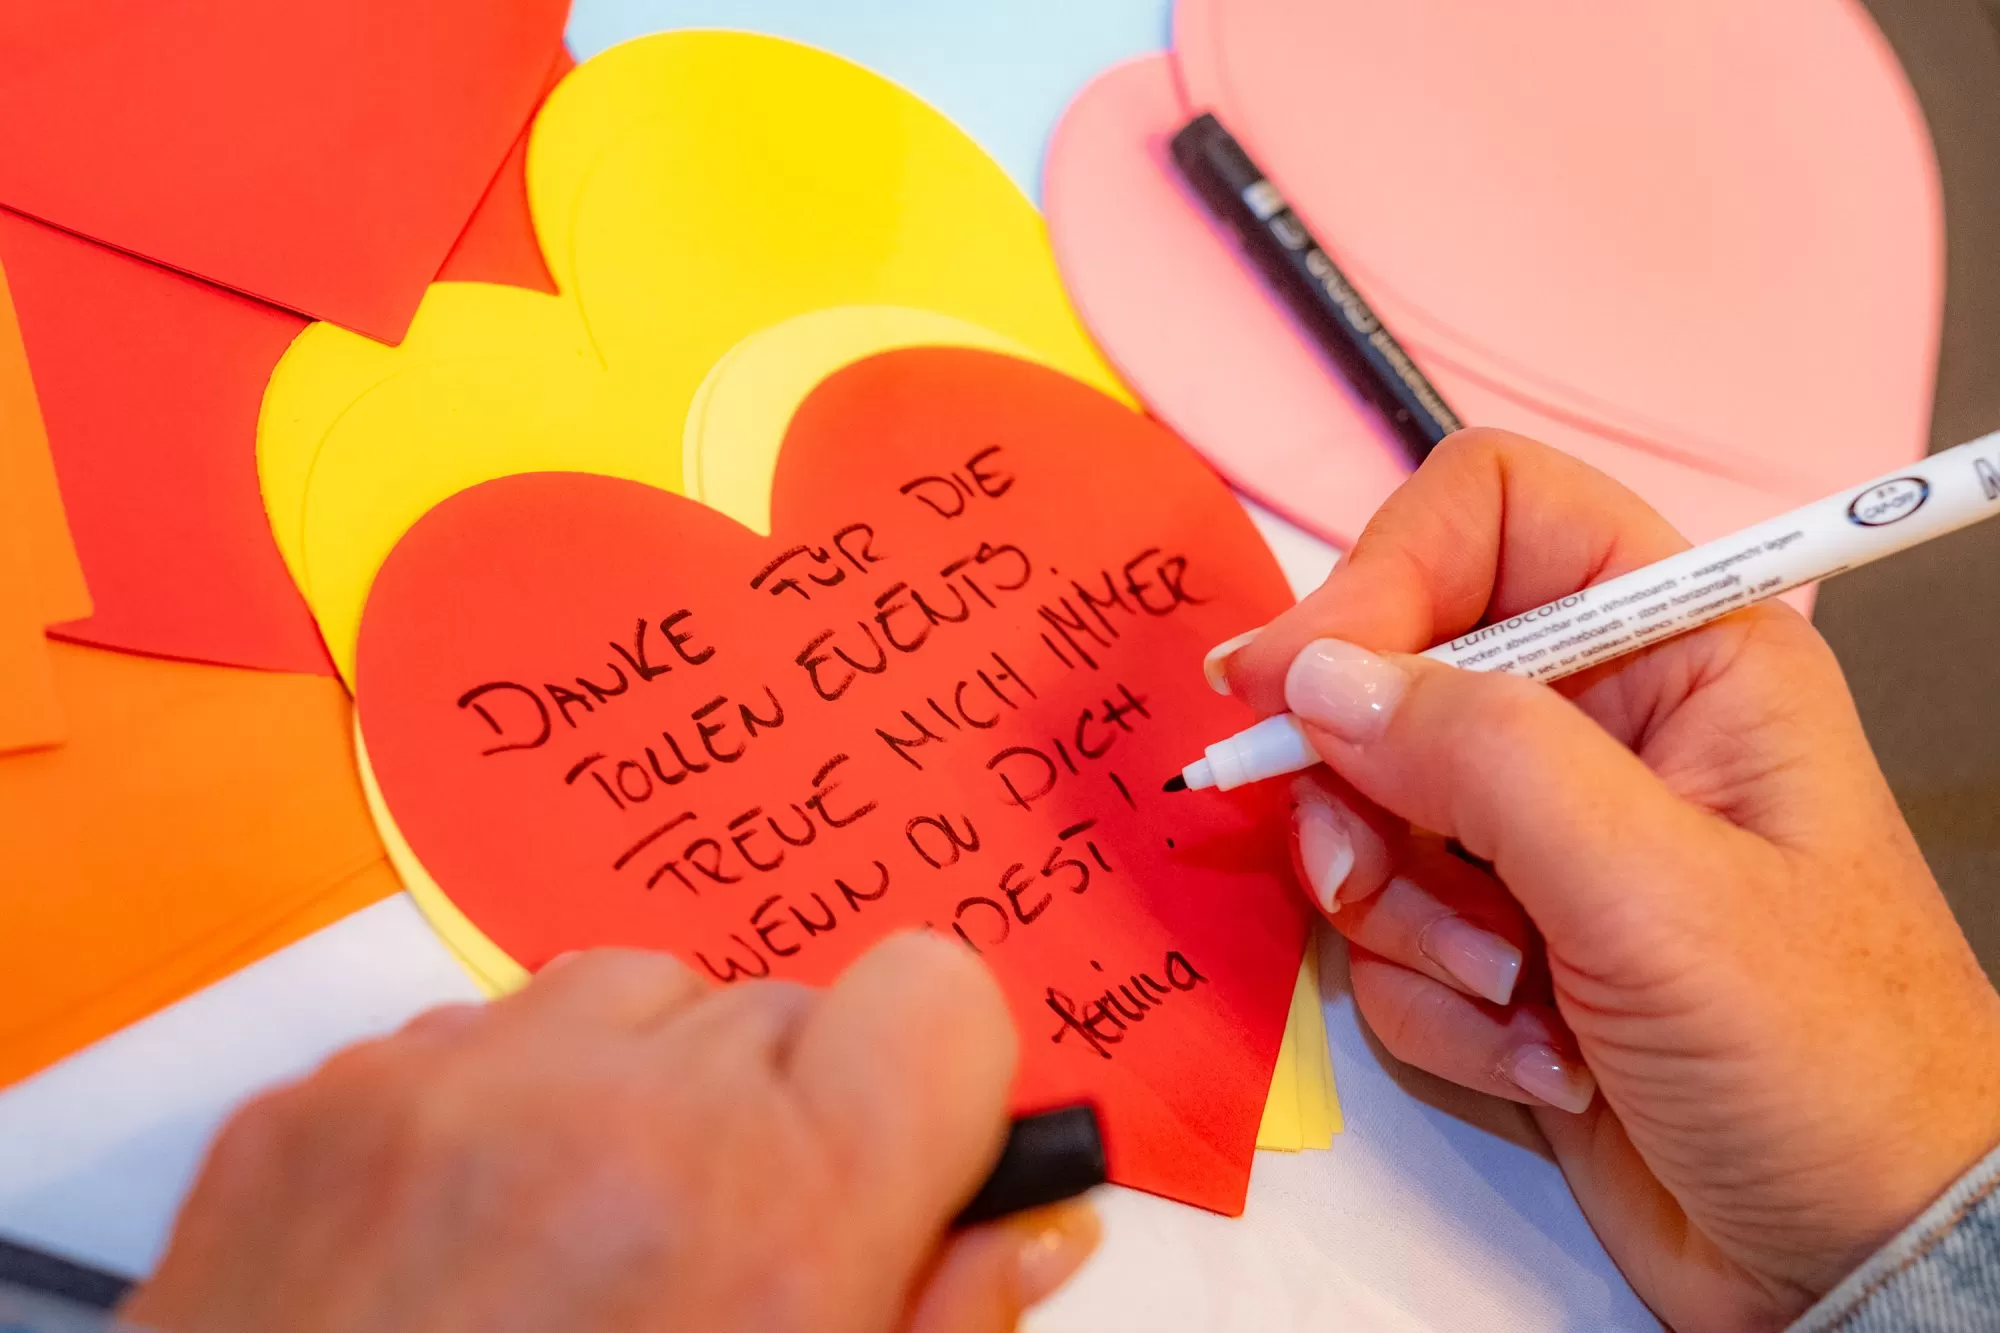 DANKE FÜR DIE
TOLLEN EVENTS.
FREUE MICH IMMER
WENN DU DICH
DEST!
Lumocolor
trocken abwischbar von Whiteboards • waagerecht lagern
ipe from whiteboards • store horizontally
à sec sur tableaux blancs • conserver à plat
CAP-OFF
permanent